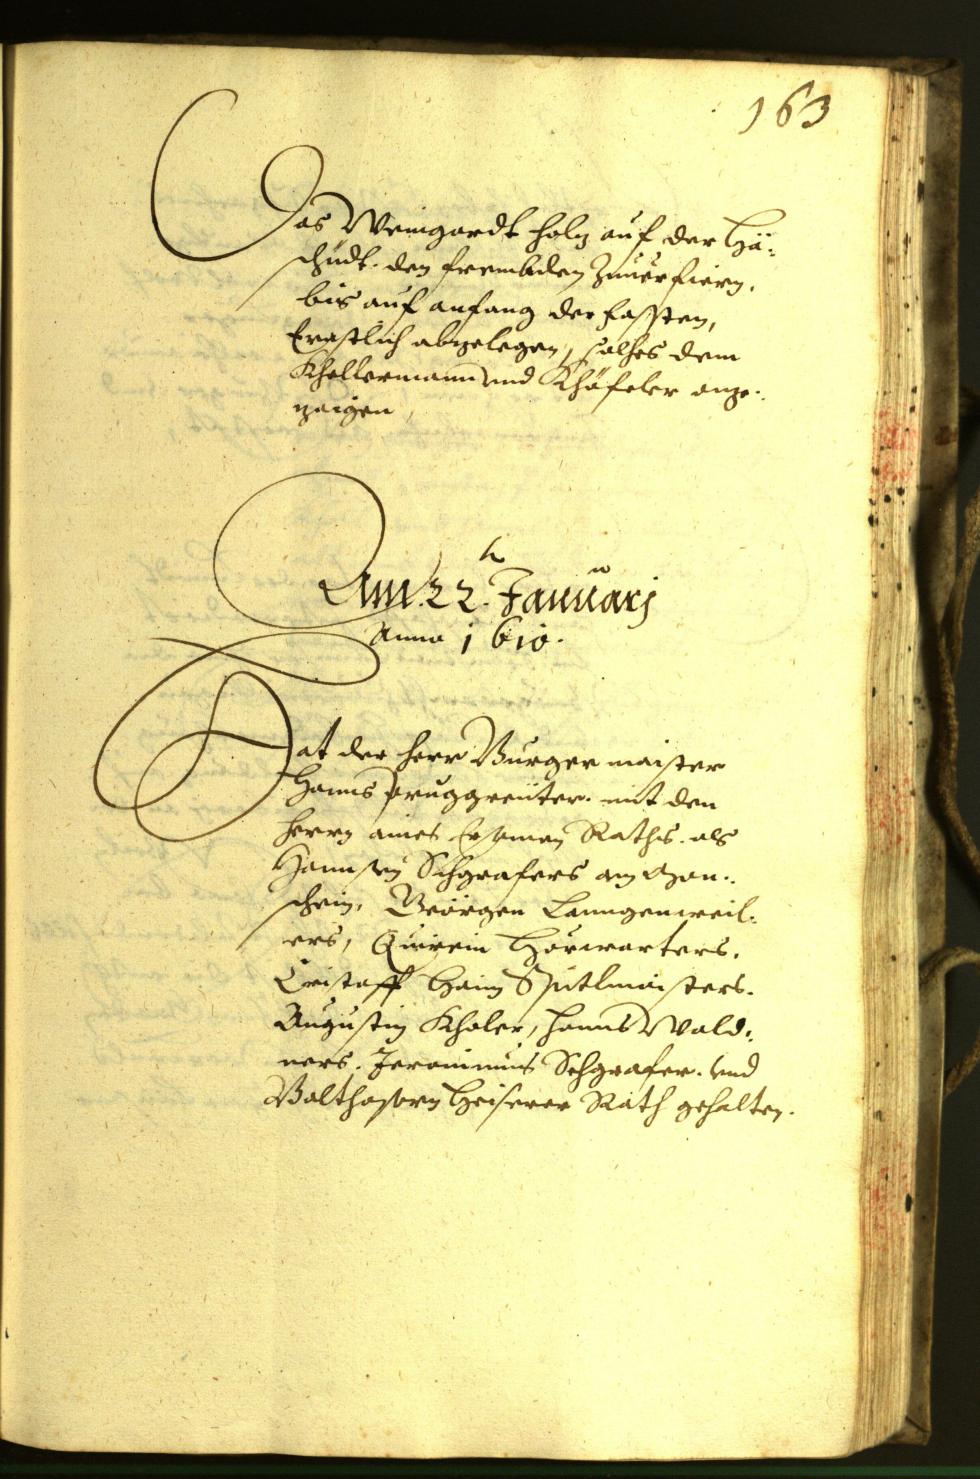 163
Das Weingardt holz auf der Hä:
schüdt. den frembden Zuuerfiern.
bis auf anfang der fassten,
Ernstlich abzelegen, solhes dem
Khellermann vnd Khäfeler anze:
zaigen,
Am .22.ten Januarj
Anno 1610.
Hat der herr Burgermaister
Hanns Pruggreüter. mit den
herrn aines Ersamen Raths. als
Hannsen Schgrafers am Gan:
schein, Geörgen Lanngenweil:
ers, Quirein Hörwarters.
Cristoff Haim Spitlmaisters.
Augustin Khaler, Hanns Wald:
ners. Jeronimus Schgrafer. vnd
Balthasarn Heiserer Rath gehalten.